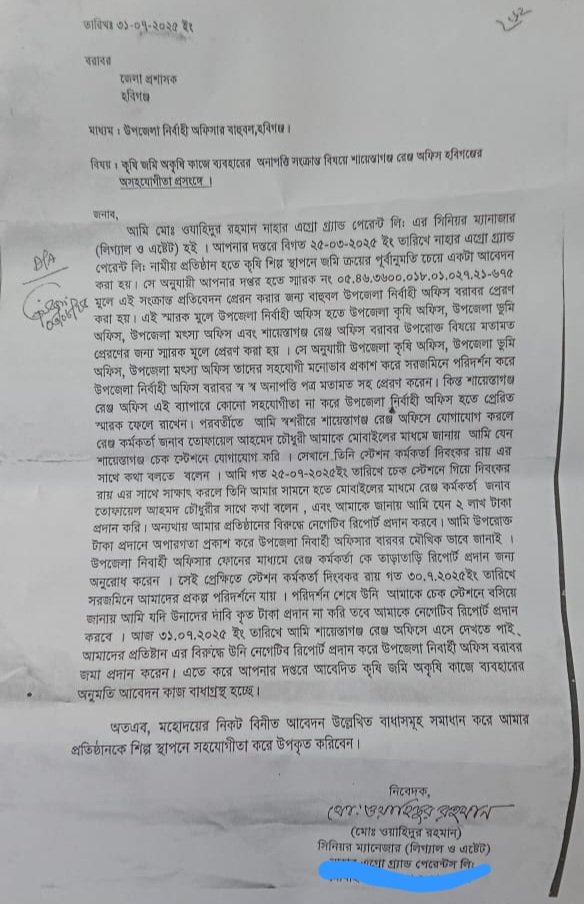 তারিখঃ ৩১-০৭-২০২৫ ইং
বরাবর
জেলা প্রশাসক
হবিগঞ্জ
মাধ্যম : উপজেলা নির্বাহী অফিসার বাহুবল,হবিগঞ্জ।
বিষয় : কৃষি জমি অকৃষি কাজে ব্যবহারের অনাপত্তি সংক্রান্ত বিষয়ে শায়েস্তাগঞ্জ রেঞ্জ অফিস হবিগঞ্জের
অসহযোগীতা প্রসংঙ্গে ।
জনাব,
আমি মোঃ ওয়াহিদুর রহমান নাহার এগ্রো গ্র্যান্ড পেরেন্ট লি: এর সিনিয়র ম্যানাজার
(লিগ্যাল ও এস্টেট) হই । আপনার দপ্তরে বিগত ২৫-০৩-২০২৫ ইং তারিখে নাহার এগ্রো গ্র্যান্ড
পেরেন্ট লি: নামীয় প্রতিষ্ঠান হতে কৃষি শিল্প স্থাপনে জমি ক্রয়ের পূর্বানুমতি চেয়ে একটা আবেদন
করা হয়। সে অনুযায়ী আপনার দপ্তর হতে স্মারক নং ০৫.৪৬.৩৬০০.০১৮.০১.০২৭.২১-৬৭৫
মূলে এই সংক্রান্ত প্রতিবেদন প্রেরন করার জন্য বাহুবল উপজেলা নির্বাহী অফিস বরাবর প্রেরণ
করা হয়। এই স্মারক মূলে উপজেলা নির্বাহী অফিস হতে উপজেলা কৃষি অফিস, উপজেলা ভূমি
অফিস, উপজেলা মৎস্য অফিস এবং শায়েস্তাগঞ্জ রেঞ্জ অফিস বরাবর উপরোক্ত বিষয়ে মতামত
প্রেরণের জন্য স্মারক মূলে প্রেরণ করা হয় । সে অনুযায়ী উপজেলা কৃষি অফিস, উপজেলা ভূমি
অফিস, উপজেলা মৎস্য অফিস তাদের সহযোগী মনোভাব প্রকাশ করে সরজমিনে পরিদর্শন করে
উপজেলা নির্বাহী অফিস বরাবর স্ব স্ব অনাপত্তি পত্র মতামত সহ প্রেরণ করেন। কিন্ত শায়েস্তাগঞ্জ
রেঞ্জ অফিস এই ব্যাপারে কোনো সহযোগীতা না করে উপজেলা নির্বাহী অফিস হতে প্রেরিত
স্মারক ফেলে রাখেন। পরবর্তীতে আমি স্বশরীরে শায়েস্তাগঞ্জ রেঞ্জ অফিসে যোগাযোগ করলে
রেঞ্জ কর্মকর্তা জনাব তোফায়েল আহমেদ চৌধুরী আমাকে মোবাইলের মাধ্যমে জানায় আমি যেন
শায়েস্তাগঞ্জ চেক স্টেশনে যোগাযোগ করি । সেখানে তিনি স্টেশন কর্মকর্তা দিবংকর রায় এর
সাথে কথা বলতে বলেন । আমি গত ২৫-০৭-২০২৫ইং তারিখে চেক স্টেশনে গিয়ে দিবংকর
রায় এর সাথে সাক্ষাৎ করলে তিনি আমার সামনে হতে মোবাইলের মাধ্যমে রেঞ্জ কর্মকর্তা জনাব
তোফায়েল আহমদ চৌধুরীর সাথে কথা বলেন , এবং আমাকে জানায় আমি যেন ২ লাখ টাকা
প্রদান করি। অন্যথায় আমার প্রতিষ্ঠানের বিরুদ্ধে নেগেটিব রিপোর্ট প্রদান করবে। আমি উপরোক্ত
টাকা প্রদানে অপারগতা প্রকাশ করে উপজেলা নির্বাহী অফিসার বারবর মৌখিক ভাবে জানাই ।
উপজেলা নির্বাহী অফিসার ফোনের মাধ্যমে রেঞ্জ কর্মকর্তা কে তাড়াতাড়ি রিপোর্ট প্রদান জন্য
অনুরোধ করেন । সেই প্রেক্ষিতে স্টেশন কর্মকর্তা দিবংকর রায় গত ৩০.৭.২০২৫ইং তারিখে
সরজমিনে আমাদের প্রকল্প পরিদর্শনে যায় । পরিদর্শন শেষে উনি আমাকে চেক স্টেশনে বসিয়ে
জানায় আমি যদি উনাদের দাবি কৃত টাকা প্রদান না করি তবে আমাকে নেগেটিব রিপোর্ট প্রদান
করবে । আজ ৩১.০৭.২০২৫ ইং তারিখে আমি শায়েস্তাগঞ্জ রেঞ্জ অফিসে এসে দেখতে পাই,
আমাদের প্রতিষ্টান এর বিরুদ্ধে উনি নেগেটিব রিপোর্ট প্রদান করে উপজেলা নির্বাহী অফিস বরাবর
জমা প্রদান করেন। এতে করে আপনার দপ্তরে আবেদিত কৃষি জমি অকৃষি কাজে ব্যবহারের
অনুমতি আবেদন কাজ বাধাগ্রস্থ হচ্ছে।
অতএব, মহোদয়ের নিকট বিনীত আবেদন উল্লেখিত বাধাসমূহ সমাধান করে আমার
প্রতিষ্ঠানকে শিল্প স্থাপনে সহযোগীতা করে উপকৃত করিবেন।
নিবেদক,
মো: ওয়াহিদুর রহমান
(মোঃ ওয়াহিদুর রহমান)
সিনিয়র ম্যানেজার (লিগ্যাল ও এস্টেট)
এগ্রো গ্র্যান্ড পেরেন্টস লি: